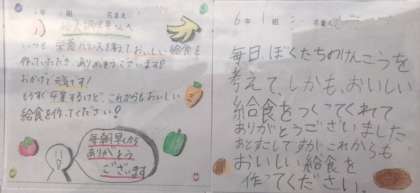 年 組 名前
いつも栄養バランスを考え、おいしい給食を
作っていただき、ありがとうございます!
おかげで元気です!
もうすぐ卒業するけど、これからもおいしい
給食を作ってください!
毎朝早くから
ありがとう
ございます
6年1組
毎日ぼくたちのけんこうを
考えて、しかも、おいしい
給食をつくってくれて
ありがとうございました
あとすこしですがこれからも
おいしい給食を
作ってください。